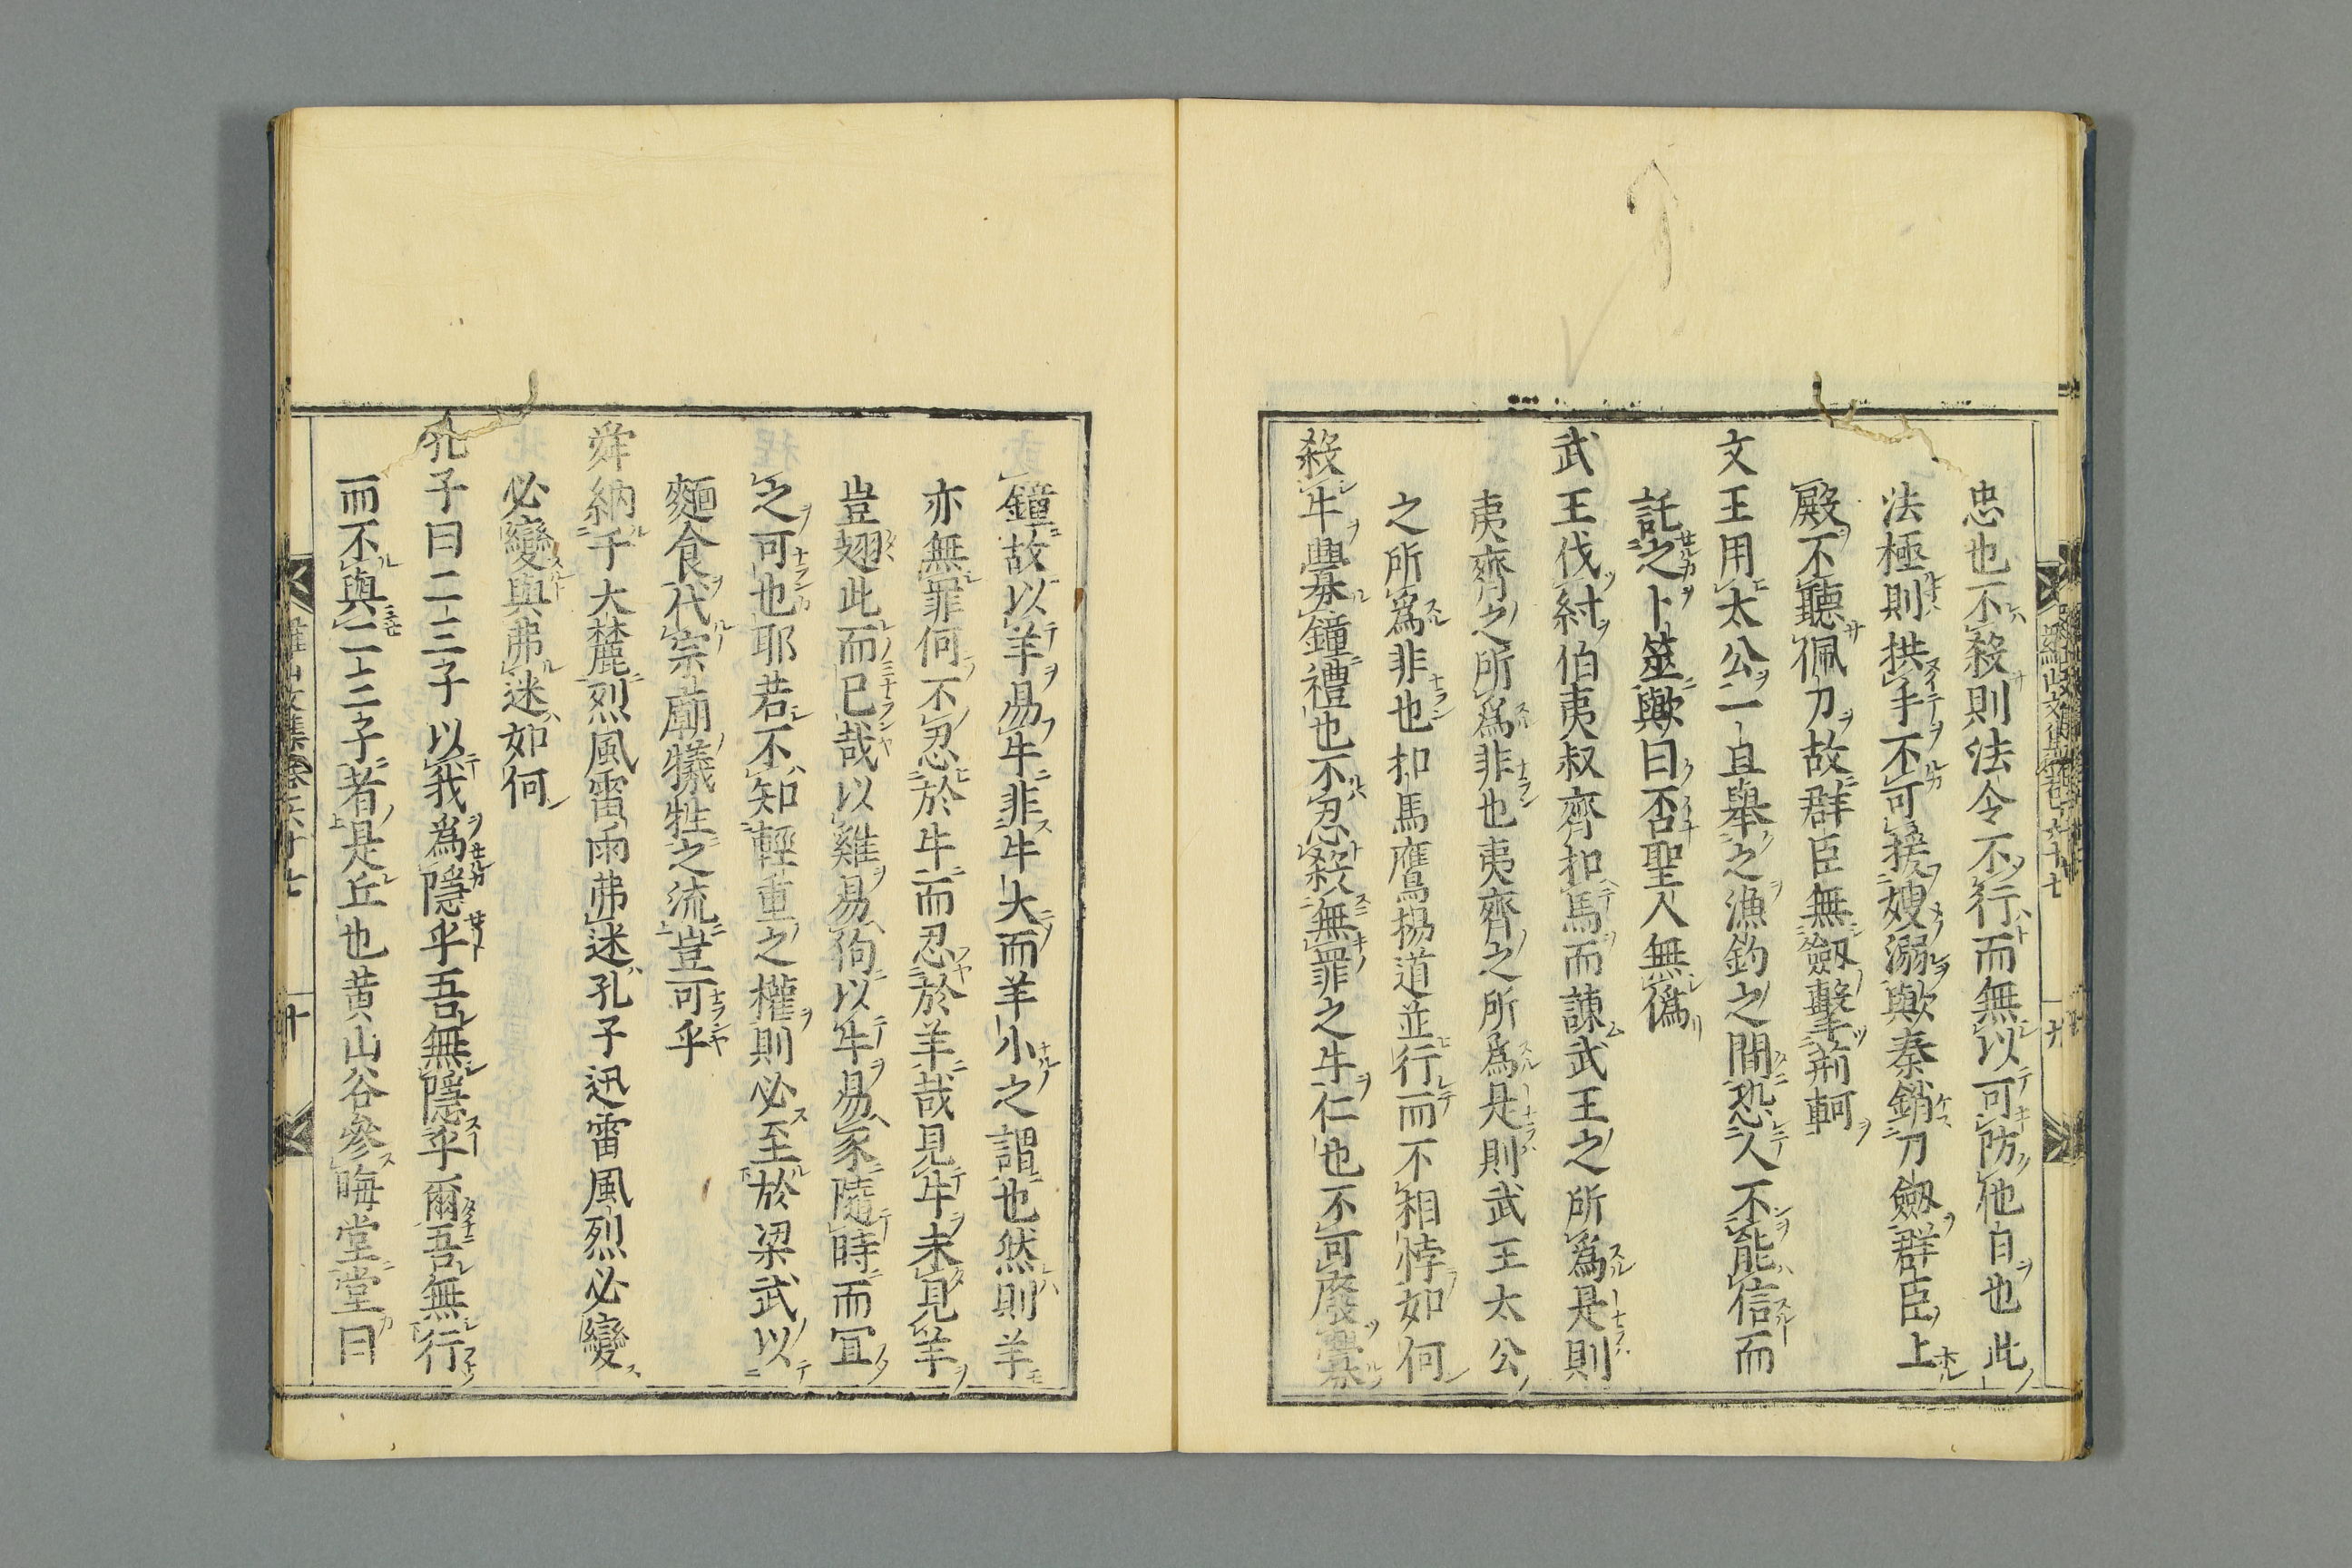 忠也不殺則法令不行而無以可防他日也此
法極則拱手不可援嫂溺歟秦銷刀劔群臣上
殿不聽佩刀故群臣無劔擊荊軻
文王用太公一旦舉之漁釣之間恐人不能信而
託之卜筮歟曰否聖人無僞
武王伐紂伯夷叔齊扣馬而諫武王之所爲是則
夷齊之所爲非也夷齊之所爲是則武王太公
之所爲非也扣馬鷹揚道並行而不相悖如何
殺牛釁鐘禮也不忍殺無罪之牛仁也不可廢釁
鐘故以羊易牛非牛大而羊小之謂也然則羊
亦無罪何不忍於牛而忍於羊哉見牛未見羊
豈翅此而已哉以雞易狗以牛易豕隨時而冝
之可也耶若不知輕重之權則必至於梁武以
麵食代宗廟犧牲之流豈可乎
舜納于大麓烈風雷雨弗迷孔子迅雷風烈必變
必變與弗迷如何
孔子曰二三子以我爲隱乎吾無隱乎爾吾無行
而不與二三子者是丘也黄山谷參晦堂堂曰
羅山文集卷六十七
十